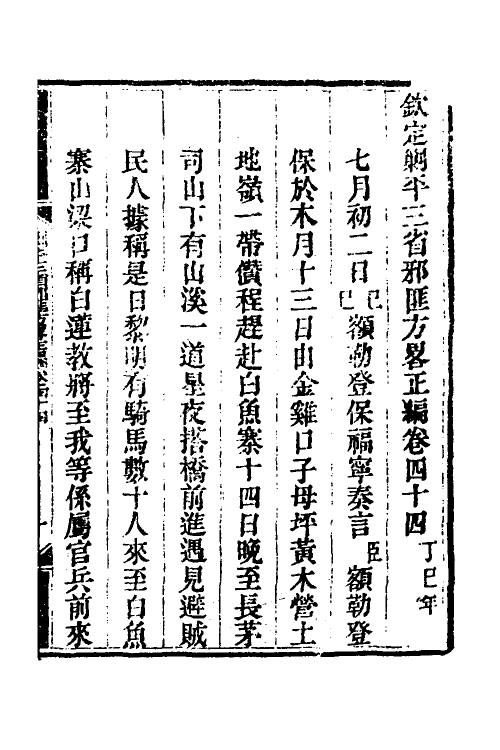 欽定剿平三省邪匪方畧正編卷四十四丁巳年
七月初二日己巳額勒登保福寧奏言臣額勒登
保於本月十三日由金雞口子母坪黃木營土
地嶺一帶儹程趕赴白魚寨十四日晚至長茅
司山下有山溪一道星夜搭橋前進遇見避賊
民人據稱是日黎明有騎馬數十人來至白魚
寨山梁口稱白蓮教將至我等係屬官兵前來